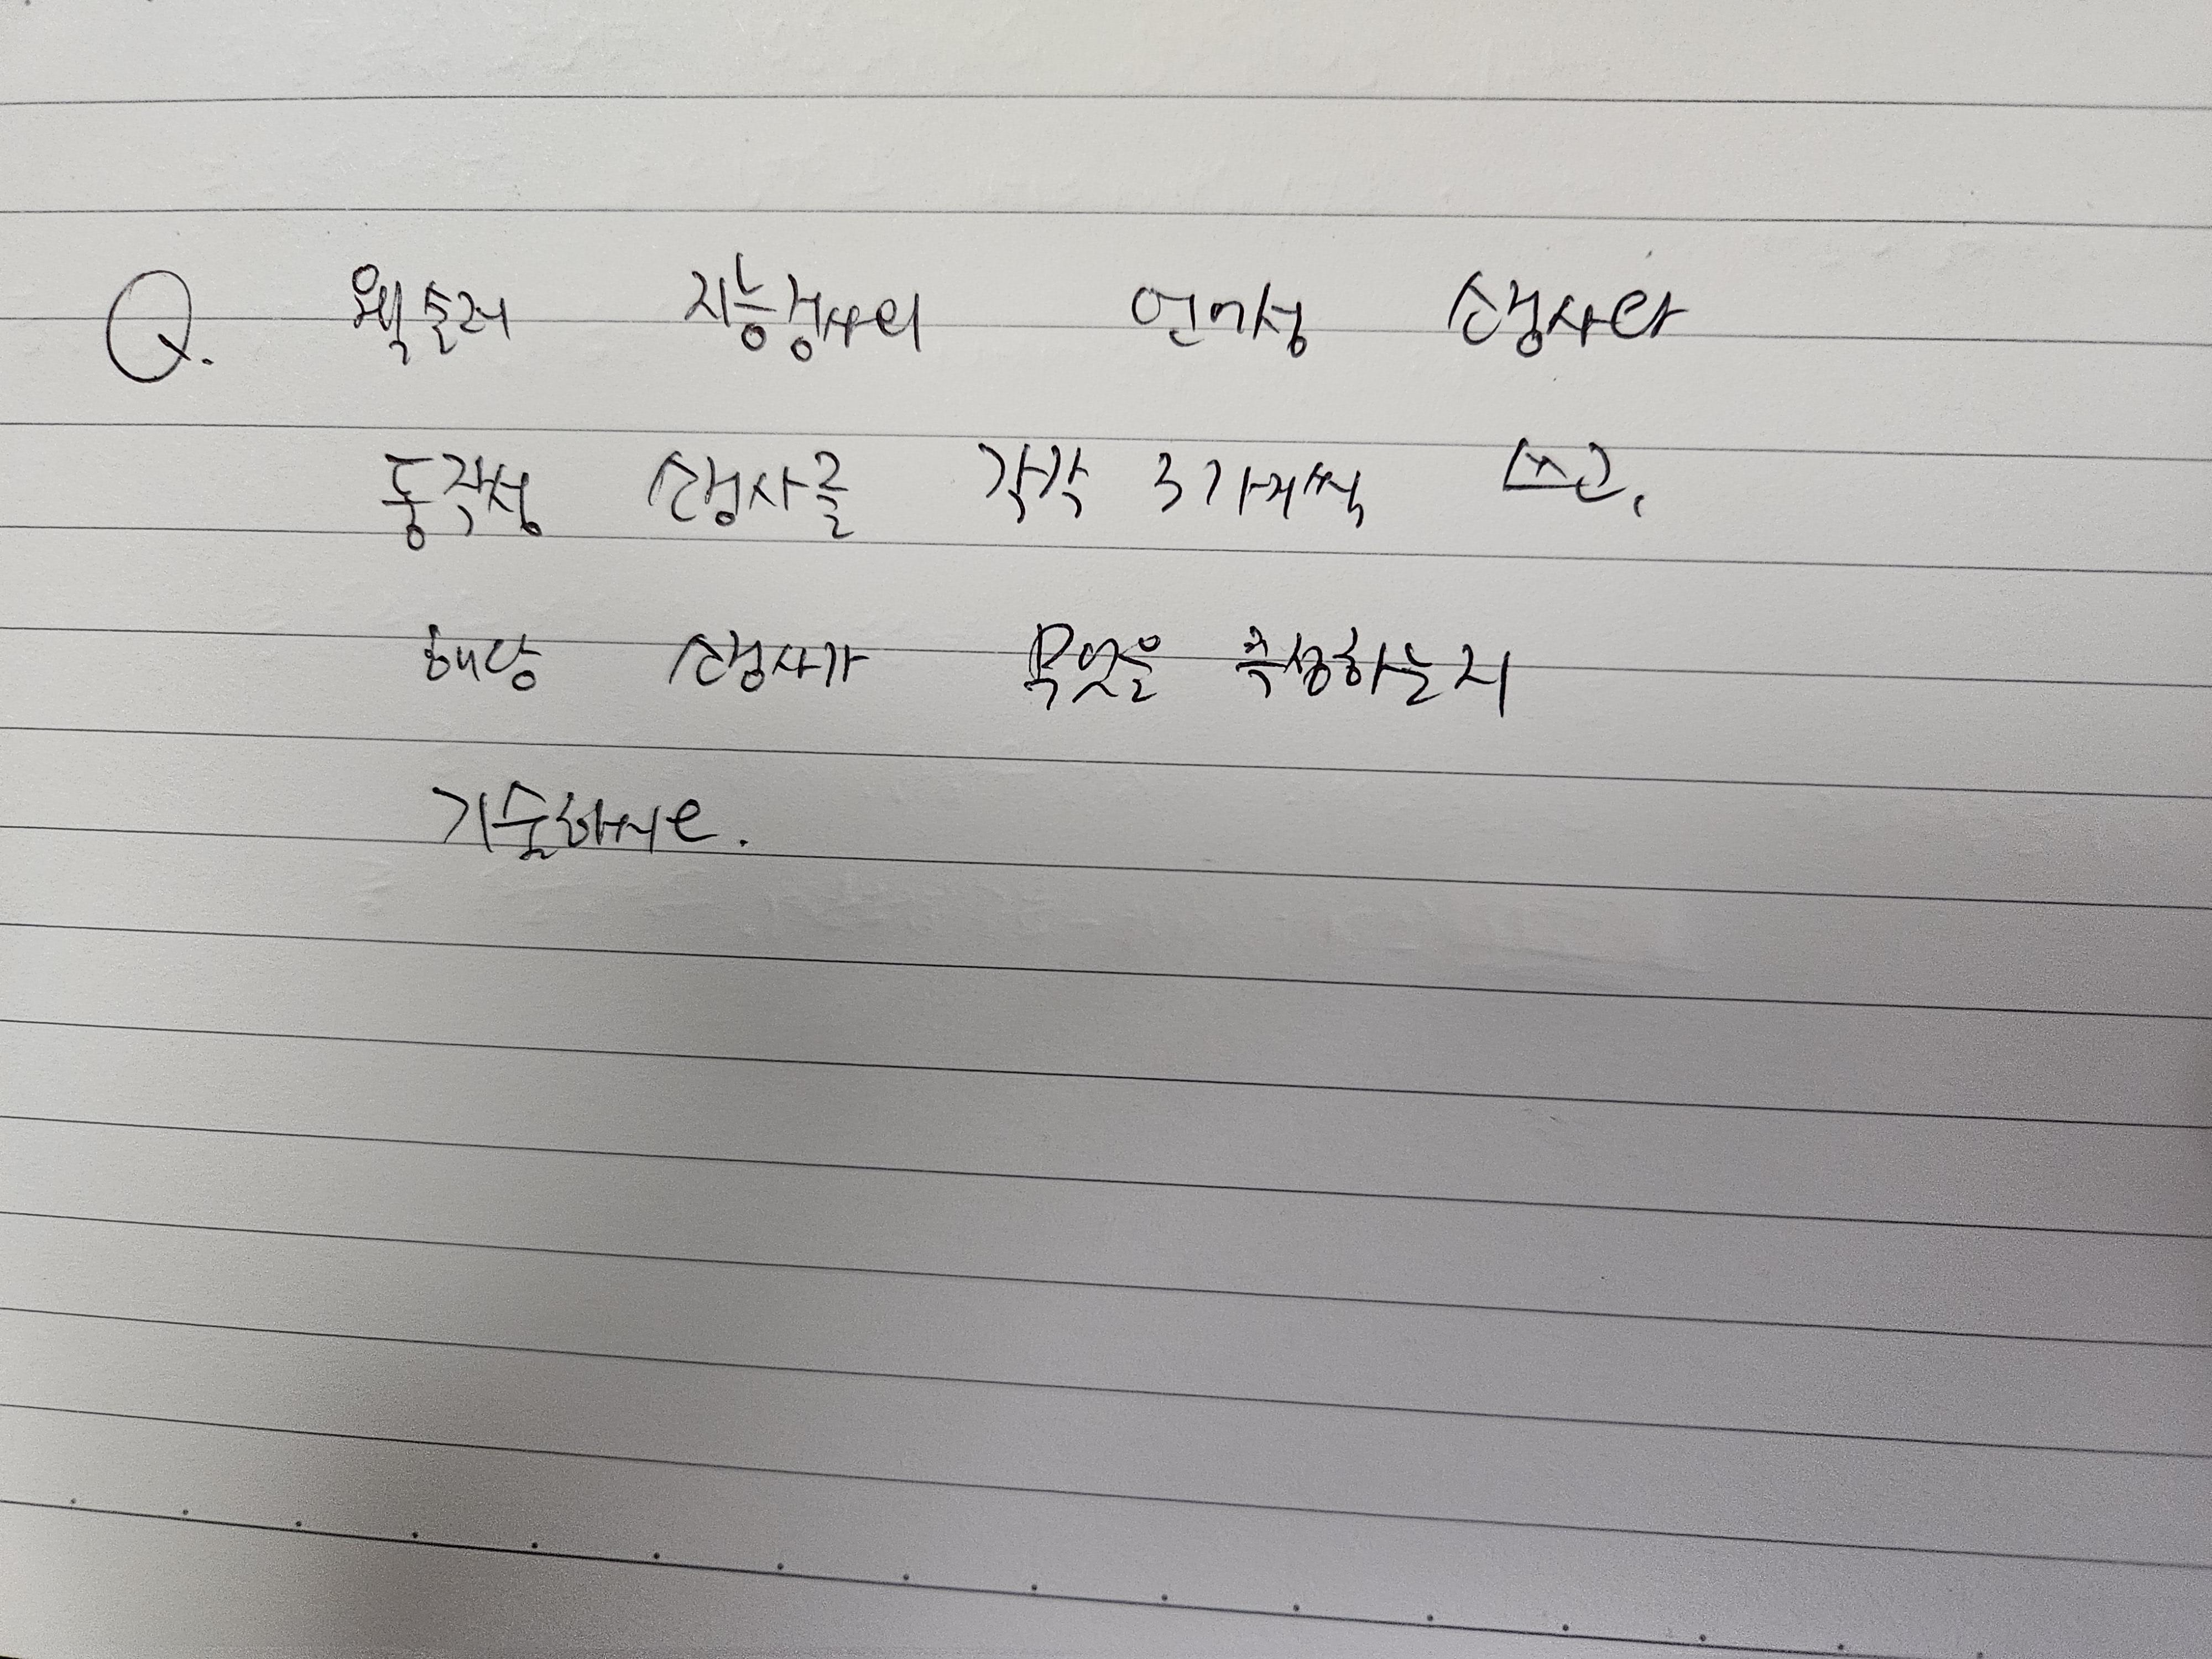 Q. 웩슬러 지능검사의 언어성 소검사와
동작성 소검사를 각각 3가지씩 쓰고,
해당 소검사가 무엇을 측정하는지
기술하시오.